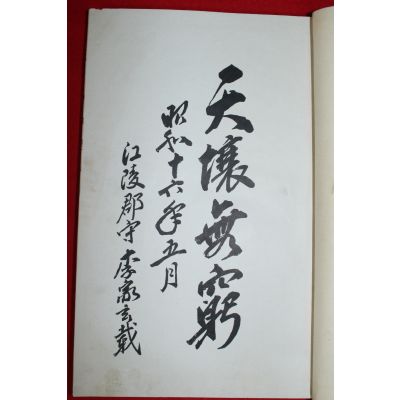 天壤無窮
昭和十六年五月
江陵郡守李家玄載